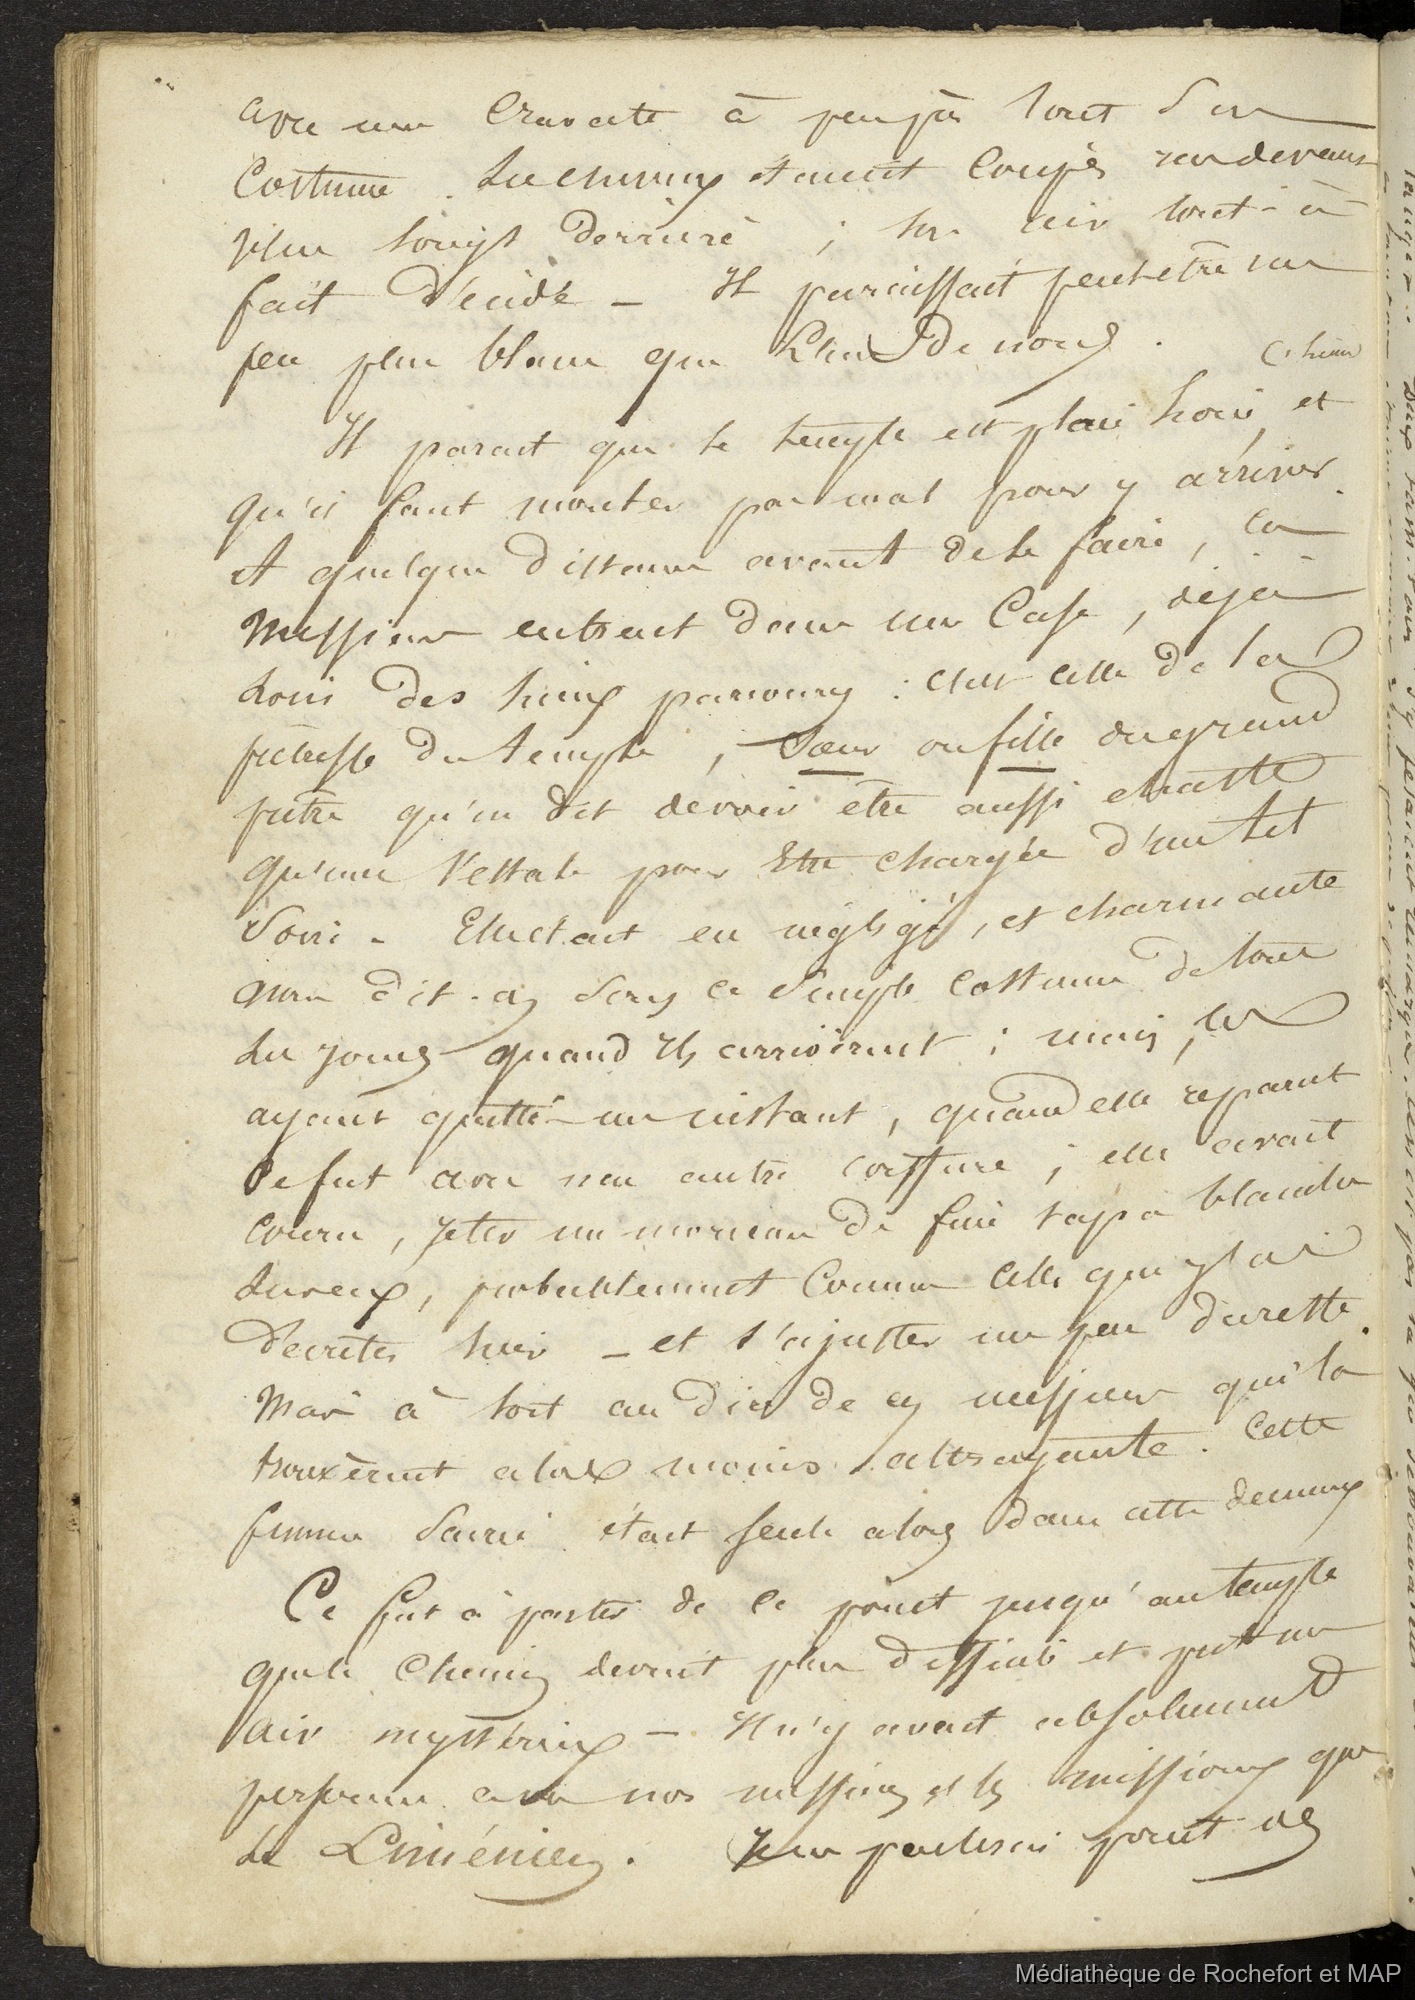 avec une cravate à peu près tout son
costume. Les cheveux étaient coupés ras devant
plus longs derrière ; son air tout-à-
fait décidé – Il paraissait peut-être un
peu plus blanc que l'un de nous.
Il parait que le temple est plus loin, et
qu'il faut monter pas mal pour y arriver.
et quelque distance avant de le faire, ces
messieurs entrent dans une Case, déjà
loin des lieux parcourus : c'est celle de la
prêtresse du temple, sœur ou fille du grand
prêtre qu'on dit devoir être aussi chaste
qu'une Vestale pour être chargée d'un tel
soin. Elle était en négligé, et charmante
nous dit-on sous ce simple costume de tous
les jours quand ils arrivèrent ; mais, les
ayant quitté un instant, quand elle reparut
ce fut avec une autre coiffure ; elle avait
couru, jeter un morceau de fine tapa blanche
cheveux, probablement comme celle que j'ai
décrites hier – et s'ajuster un peu du reste.
Mais à tort au dire de ces messieurs qui la
trouvèrent alors moins attrayante. Cette
femme Sacrée était seule alors dans cette demeure
Ce fut à partir de ce point jusqu'au temple
que le chemin devint plus difficile et prit un
air mystérieux – Il n'y avait absolument
personne avec nos messieurs et les missions que
le Liménien. Je ne parlerai point des
Médiathèque de Rochefort et MAP